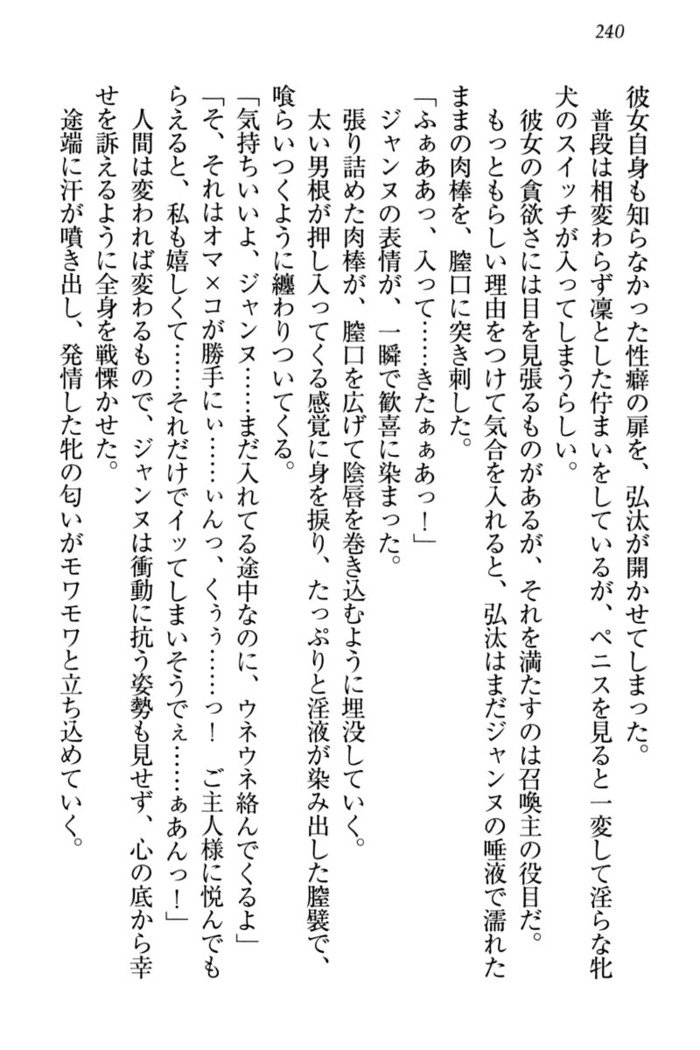 240
彼女自身も知らなかった性癖の扉を、弘汰が開かせてしまった。
普段は相変わらず凛とした佇まいをしているが、ペニスを見ると一変して淫らな牝
犬のスイッチが入ってしまうらしい。
彼女の貪欲さには目を見張るものがあるが、それを満たすのは召喚主の役目だ。
もっともらしい理由をつけて気合を入れると、弘汰はまだジャンヌの唾液で濡れた
ままの肉棒を、膣口に突き刺した。
「ふぁああっ、入って……きたぁぁあっ！」
ジャンヌの表情が、一瞬で歓喜に染まった。
張り詰めた肉棒が、膣口を広げて陰唇を巻き込むように埋没していく。
太い男根が押し入ってくる感覚に身を捩り、たっぷりと淫液が染み出した膣襞で、
喰らいつくように纏わりついてくる。
「気持ちいいよ、ジャンヌ……まだ入れてる途中なのに、ウネウネ絡んでくるよ」
「そ、それはオマ×コが勝手にぃ……ぃんっ、くぅぅ……っ！　ご主人様に悦んでも
らえると、私も嬉しくて……それだけでイッてしまいそうでぇ……ぁあんっ！」
人間は変われば変わるもので、ジャンヌは衝動に抗う姿勢も見せず、心の底から幸
せを訴えるように全身を戦慄かせた。
途端に汗が噴き出し、発情した牝の匂いがモワモワと立ち込めていく。